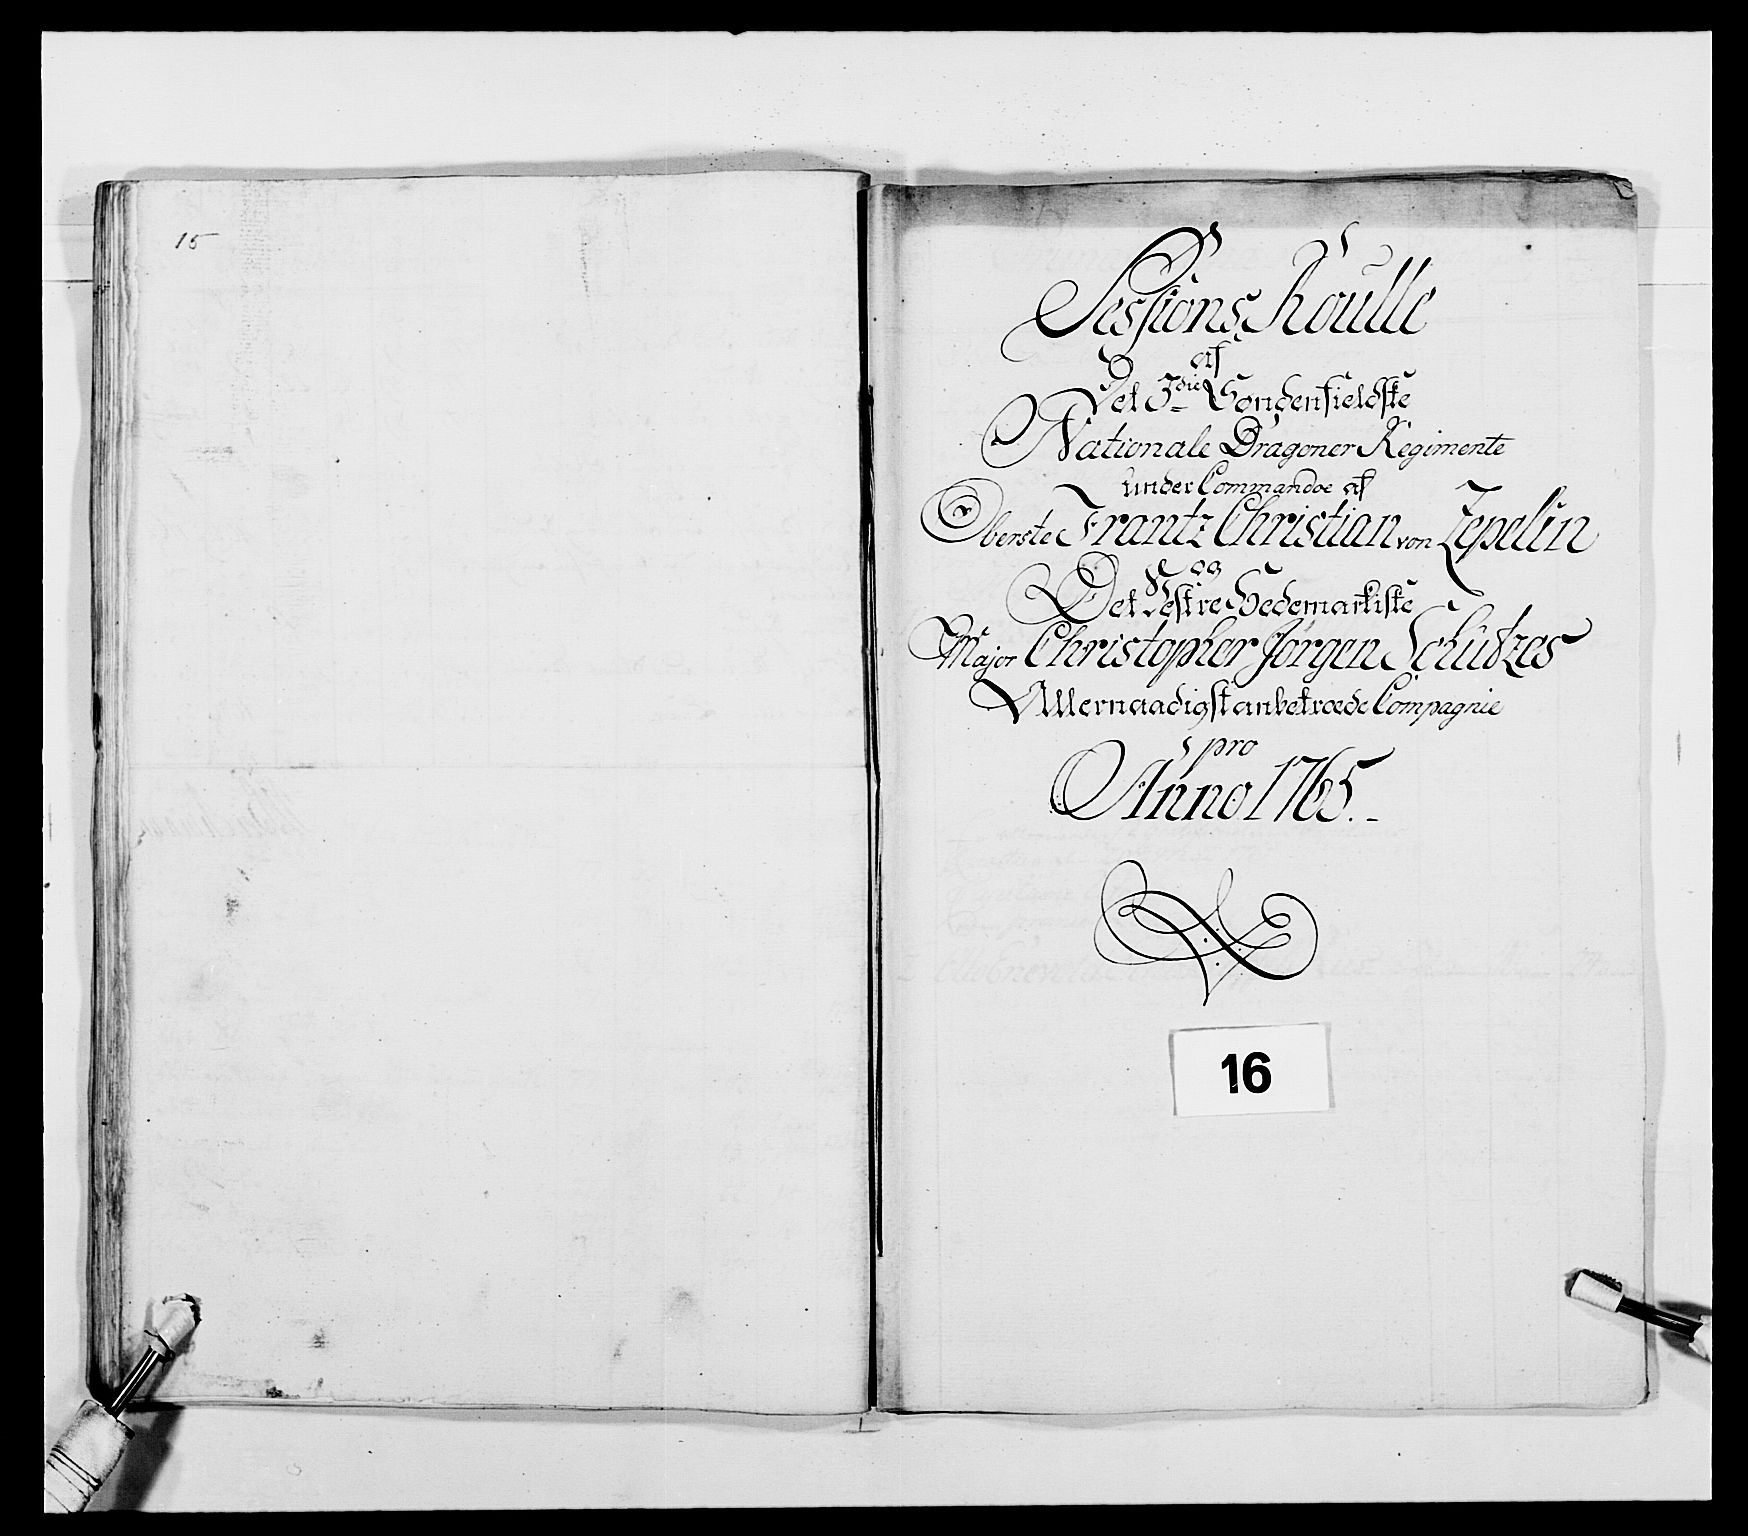 15
Sessions Roulle
af
Det 3die Söndenfieldske
Nationale Dragoner Regimente
under Commandoe af
Oberste Frantz Christian von Zepelin
og
Det Vestre Hedemarkiske
Major Christopher Jörgen Schützes
Allernaadigst anbetroede Compagnie
pro
Anno 1765.
16